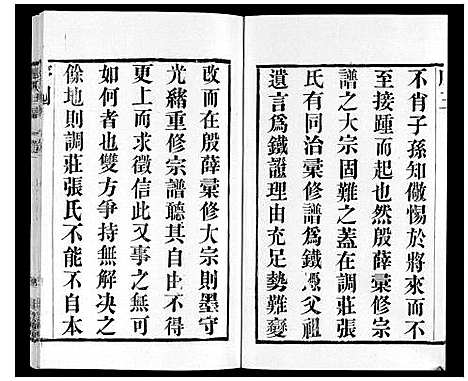 不肖子孫知儆惕於將來而不
至接踵而起也然殷薛彙修宗
譜之大宗固難之蓋在調莊張
氏有同治彙修譜為鐵憑父祖
遺言為鐵證理由充足勢難變
改而在殷薛彙修大宗則墨守
光緒重修宗譜聽其自由不得
更上而求徵信此又事之無可
如何者也雙方爭持無解決之
餘地則調莊張氏不能不自本